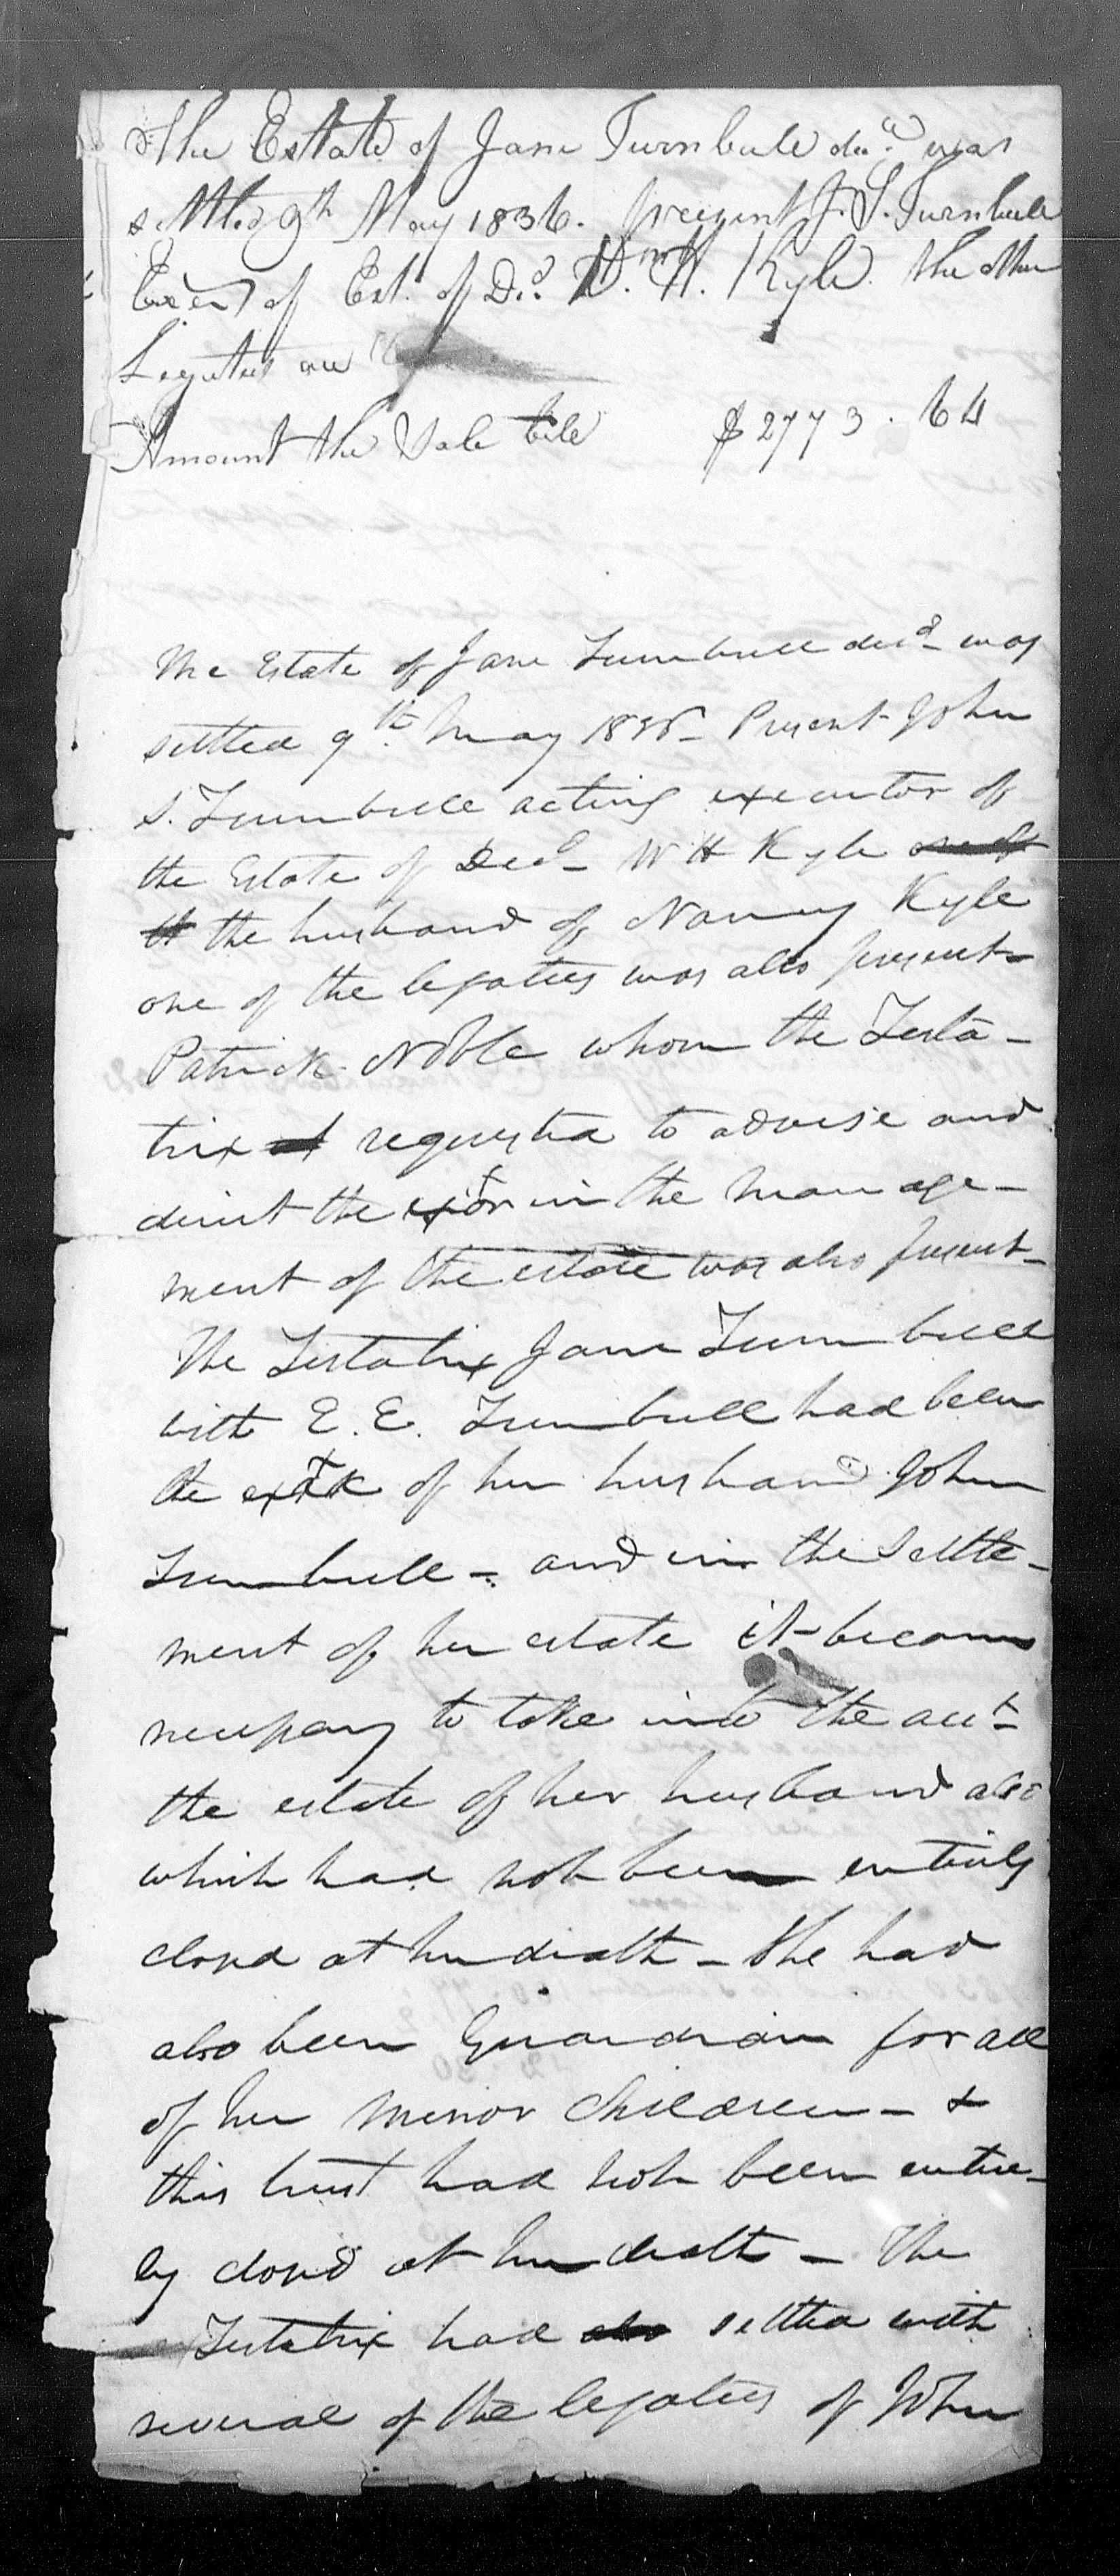 The Estate of Jane Turnbull decd. was
settled 9th May 1836. present J. S. Turnbull
Exer of Est. of Dd. Wm H. Kyle. the other
Legatees are
Amount the Sale bill $2773.64
The Estate of Jane Turnbull decd - was
settled 9th May 1836 - Present John
S. Turnbull acting executor of
the Estate of Decd - W H Kyle
the husband of Nancy Kyle
one of the legatees was also present -
Patrick Noble whom the Testa-
trix requested to advise and
direct the exor in the manage-
ment of the estate was also present -
The Testatrix Jane Turnbull
with E. E. Turnbull had been
the of her husband John
Turnbull - and in the settle-
ment of her estate it became
necessary to take into the acct -
the estate of her husband also
which had not been entirely
closed at her death - She had
also been Guardian for all
of her minor children - &
this trust had not been entire-
ly closed at her death - The
Testatrix had also settled with
several of the legatees of John